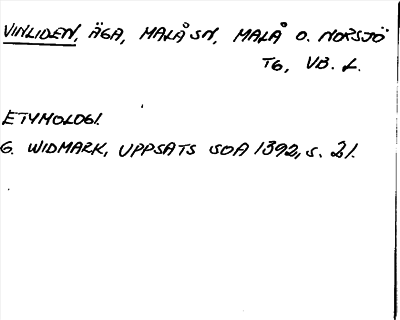 VINLIDEN, ÄGA, MALÅ SN, MALÅ O. NORSJÖ
TG, VB. L.
ETYMOLOGI.
G. WIDMARK, UPPSATS SOA 1392, s. 21.